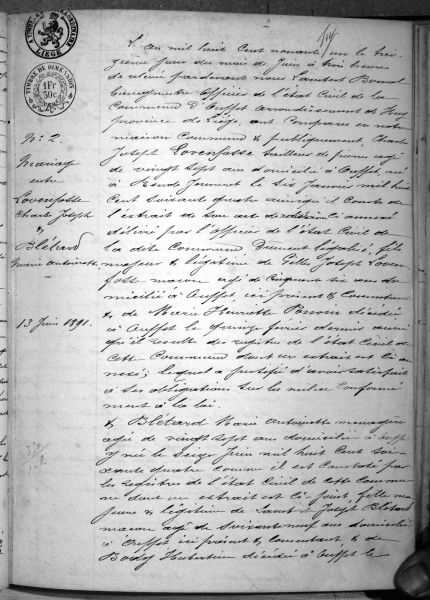 TIMBRE EXTRAORDINAIRE
LIÉGE
TIMBRE DE DIMENSION
1Fr
30c
2
N° 2.
Mariage
entre
Lovenfosse
Charles Joseph
&
Blétard
Marie Antoinette
13 Juin 1891.
L'an mil huit Cent nonante un le trei
zième jour du mois de Juin à trois heures
de relevée pardevant nous Lambert
Bourgmestre Officier de l'état Civil de la
Commune d'Ouffet arrondissement de Huy
province de Liège, ont Comparu en notre
maison Commune & publiquement, Charles
Joseph Lovenfosse tailleur de pierres agé
de vingt sept ans domicilié à Ouffet, né
à Bende Jenneret le Six Janvier mil huit
Cent soixante quatre ainsi qu'il Conste de
l'extrait de son acte de naissance annexé
délivré par l'Officier de l'état Civil de
la dite Commune Dument légalisé, fils
majeur & légitime de Joseph Loven
fosse maçon agé de Cinquante six ans do
micilié à Ouffet, ici présent & Consentant
& de Marie Henriette décédée
à Ouffet le quinze février dernier ainsi
qu'il résulte des registres de l'état Civil de
cette Commune dont un extrait est Ci an
nexé; lequel a justifié d'avoir satisfait
à ses obligations sur la milice Conformé
ment à la loi.
& Blétard Marie Antoinette menagère
agée de vingt sept ans domiciliée à Ouffet
y née le Seize Juin mil huit Cent soi
xante quatre comme il est Constaté par
les registres de l'état Civil de cette Commu
ne dont un extrait est Ci-Joint, fille ma
jeure & légitime de Joseph Blétard
maçon agé de Soixante neuf ans domicilié
à Ouffet ici présent & Consentant & de
Body Hubertine décédée à Ouffet le